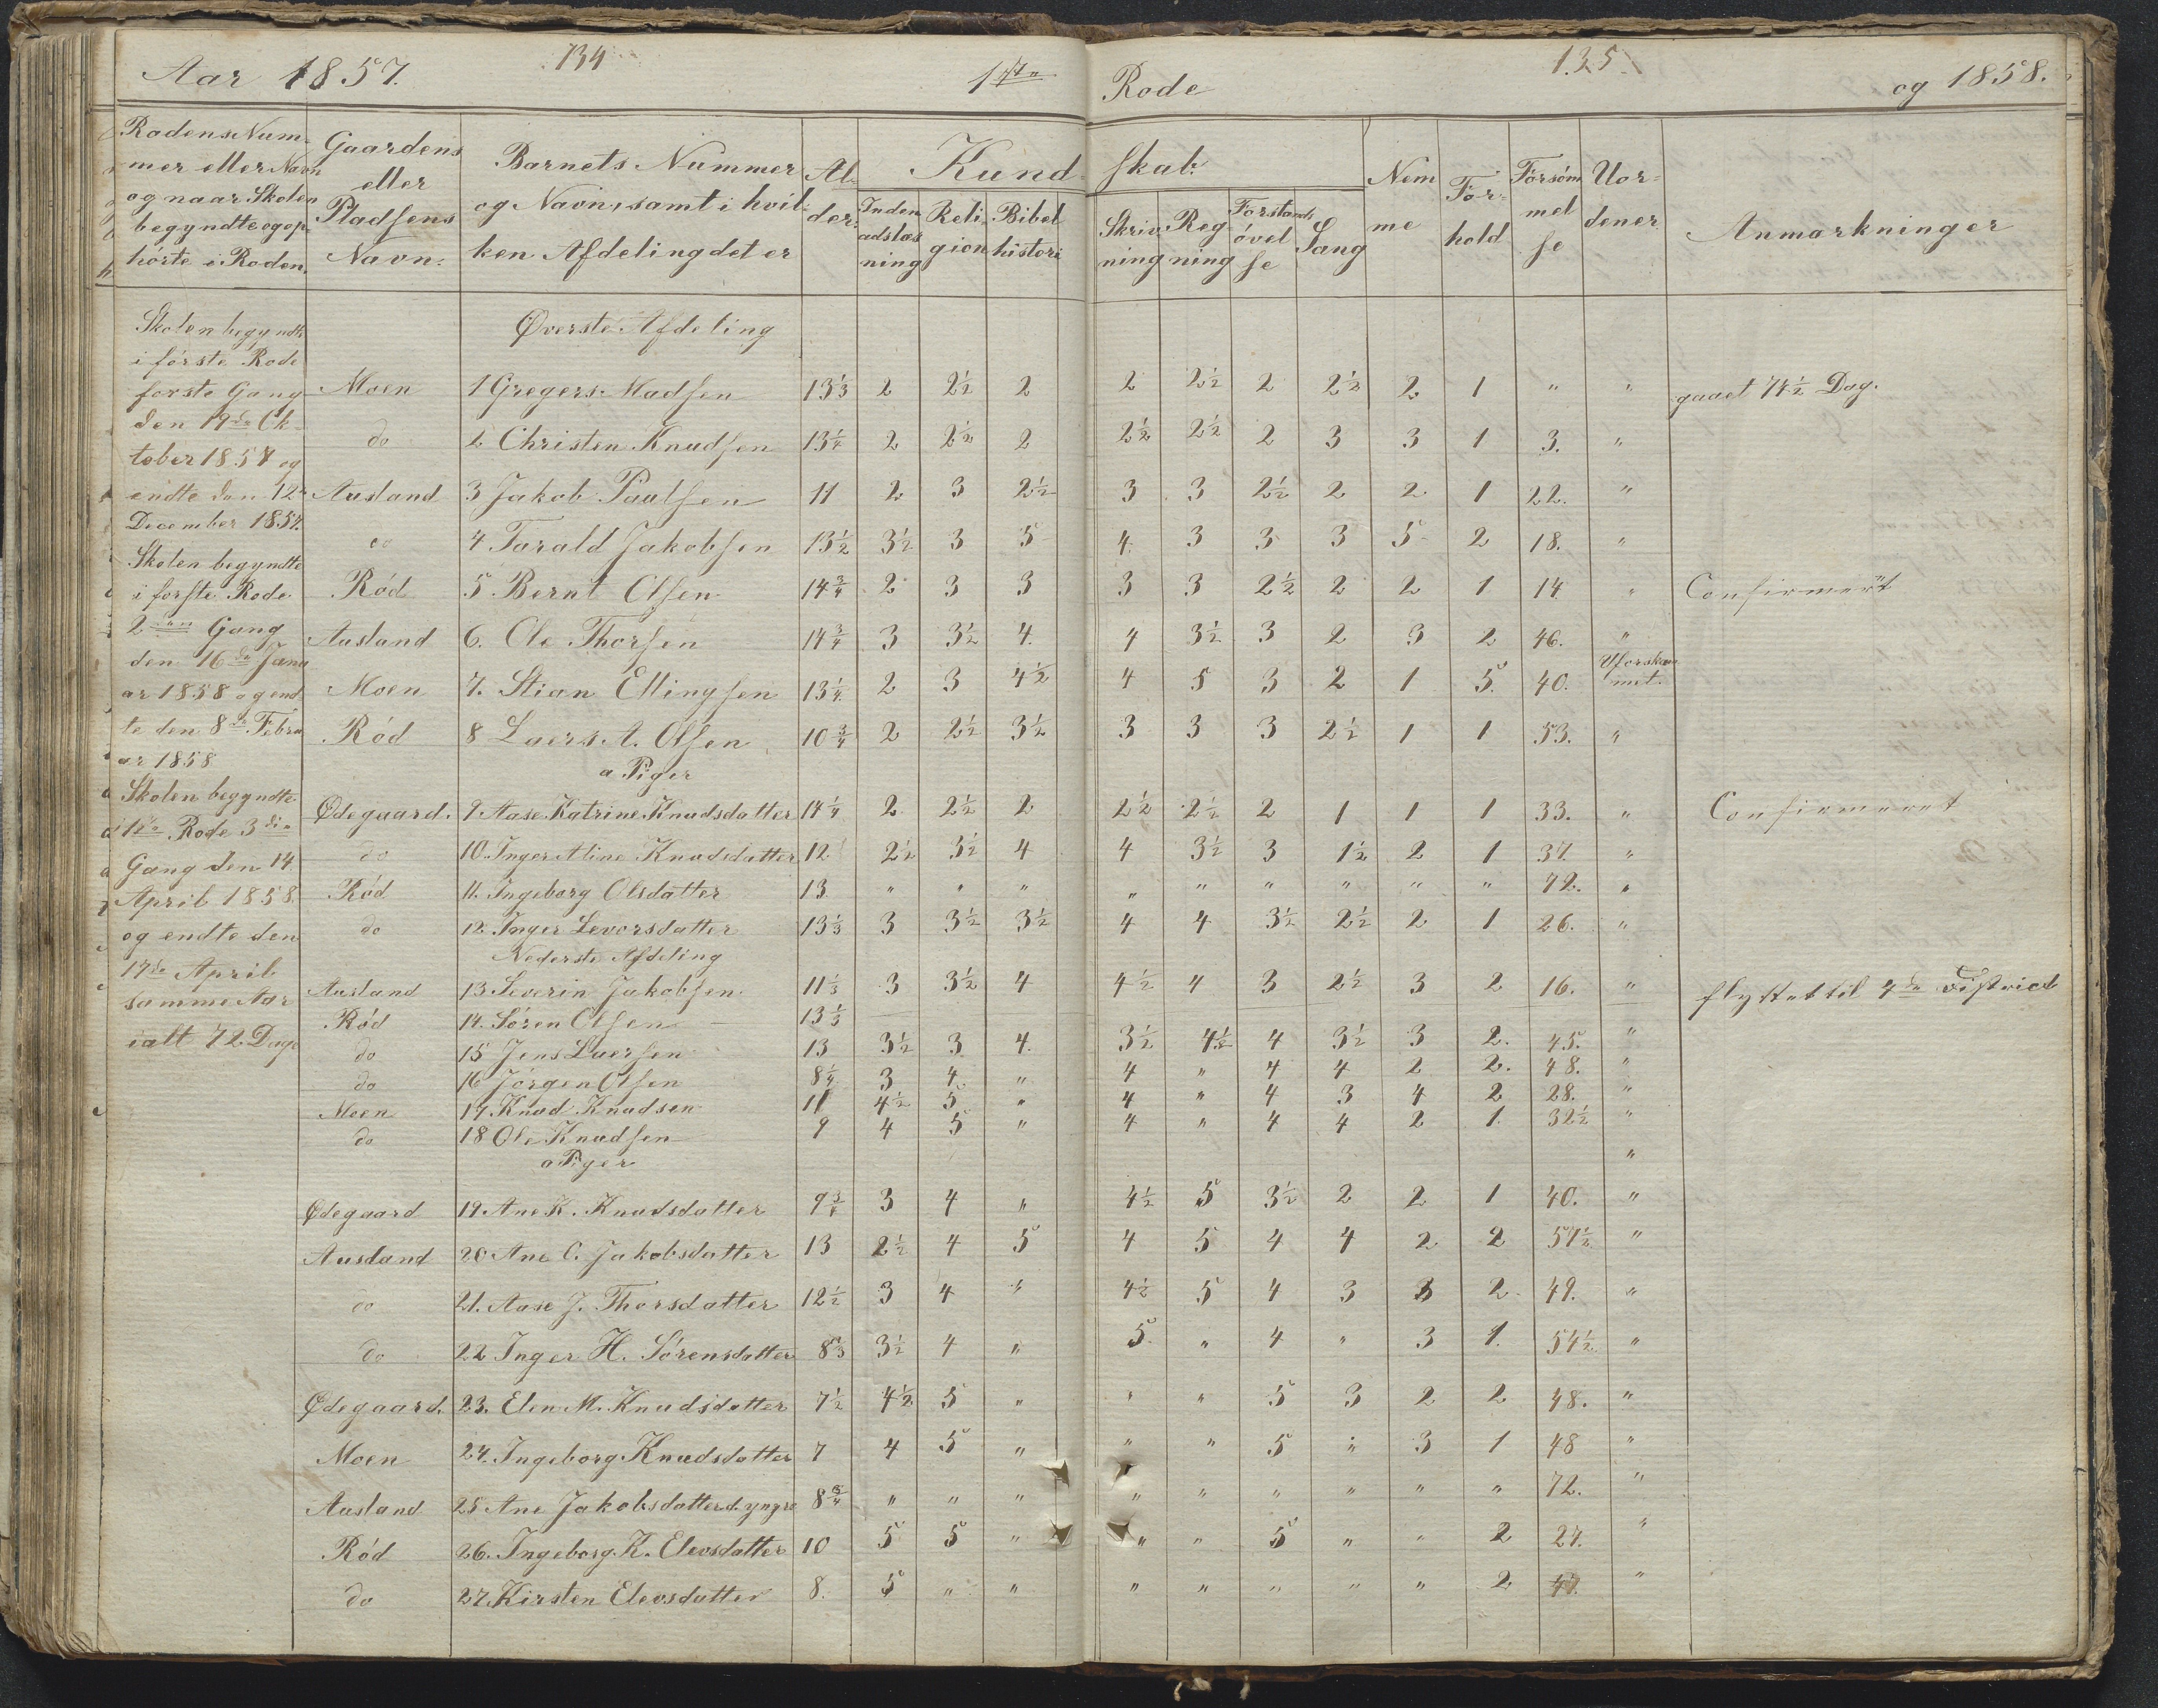 134
135.
Aar 1857.
1ste Rode
og 1858.
Rodens Num-
mer eller Navn
og naar Skolen
begyndte og op-
hörte i Roden.
Gaardens
eller
Pladsens
Navn.
Barnets Nummer
og Navn, samt i hvil-
ken Afdeling det er
Al-
der.
Kund-
skab.
Inden-
adslæs
ning
Reli-
gion
Bibel
histori
Skriv-
ning
Reg-
ning
Forstands
övel
se
Sang
Nem
me
For-
hold
Forsöm
mel
se
Uor-
dener
Anmærkninger
Skolen begyndte
i förste Rode
förste Gang
den 19de Ok-
tober 1857 og
endte den 12te
December 1857.
Skolen begyndte
i förste Rode
2den Gang
den 16de Janu
ar 1858 og end
te den 8de Febru
ar 1858
Skolen begyndte
1ste Rode 3die
Gang den 14
April 1858.
og endte den
17de April
samme Aar
ialt 72 Dage
Øverste Afdeling
Moen 1 Gregers Madsen 13⅓ 2 2½ 2 2 2½ 2 2½ 2 1 " " gaaet 74½ Dag.
do 2 Christen Knudsen 13¼ 2 2½ 2 2½ 2½ 2 3 3 1 3. "
Ausland 3 Jakob Paulsen 11 2 3 2½ 3 3 2½ 2 2 1 22. "
do 4 Tarald Jakobsen 13½ 3½ 3 5 4 3 3 3 5 2 18. "
Röd 5. Bernt Olsen 14¾ 2 3 3 3 3 2½ 2 2 1 14 " Confirmert
Ausland 6. Ole Thorsen 14¾ 3 3½ 4. 4 3½ 3 2 3 2 46. "
Moen 7. Stian Ellingsen 13¼ 2 3 4½ 4 5 3 2 1 5. 40. Uforskam
met.
Röd 8 Laers A. Olsen 10¾ 2 2½ 3½ 3 3 3 2½ 1 1 53. "
a Piger
Ødegaard. 9. Aase Katrine Knudsdatter 14¼ 2 2½ 2 2½ 2½ 2 1 1 1 33. " Confirmeret
do 10. Inger Aline Knudsdatter 12 2½ 3½ 4 4 3½ 3 1½ 2 1 37. "
Röd 11. Ingeborg Olsdatter 13 " " " " " " " " " 72. "
do 12. Inger Levorsdatter 13⅓ 3 3½ 3½ 4 4 3½ 2½ 2 1 26. "
Nederste Afdeling
Ausland 13. Severin Jakobsen 11⅓ 3 3½ 4 4½ 4 3 2½ 3 2 16. " flyttet til 4de District
Röd 14. Sören Olsen 13⅓
do 15 Jens Laersen 13 3½ 3 4. 3½ 4½ 4 3½ 3 2. 45. "
do 16 Jörgen Olsen 8¼ 3 4 " 4 " 4 4 2 2. 48. "
Moen 17. Knud Knudsen 11 4½ 5 " 4 " 4 3 4 2 28. "
do 18 Ole Knudsen 9 4 5 " 4 " 4 4 2 1. 32½ "
a Piger "
Ødegaard 19. Ane K. Knudsdatter 9¾ 3 4 " 4½ 5 3½ 2 2 1 40. "
Ausland 20 Ane C. Jakobsdatter 13 2½ 4 5 4 5 4 4 2 2 57½ "
do 21. Aase J. Thorsdatter 12½ 3 4 " 4½ 5 4 3 3 2 49. "
do 22 Inger H. Sörensdatter 8⅔ 3½ 4 " 5. " 4 " 3 1. 54½ "
Ødegaard. 23. Elen M. Knudsdatter 7½ 4½ 5 " " " 5 3 2 2 48. "
Moen 24. Ingeborg Knudsdatter 7 4 5 " " " 5 " 3 1 48 "
Ausland 25 Ane Jakobsdatter d. yngre 8 " " " " " " " " " 72. "
Röd 26. Ingeborg K. Elevsdatter 10 5 5 " " " 5 " " 2 27. "
do 27. Kirsten Elevsdatter 8. 5 " " " " " " " 2 "